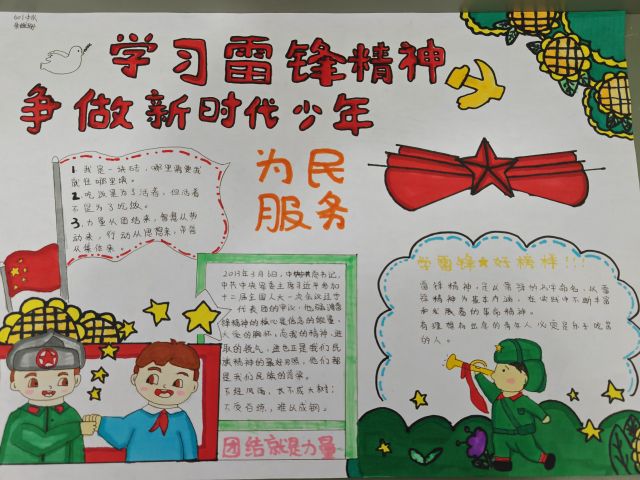 学习雷锋精神
争做新时代少年
1.我是一块砖,哪里需要我
就往哪里填。
2.吃饭是为了活着,但活着
不是为了吃饭。
3.力量从团结来,智慧从劳
动来,行动从思想来,荣誉
从集体来。
为民
服务
2013年3月6日,中共中央总书记、
中共中央军委主席习近平参加
十二届全国人大一次会议辽宁
代表团的审议,他强调雷
锋精神的核心是信念的能量、
大爱的胸怀、忘我的精神、进
取的锐气,这也正是我们民
族精神的最好写照,他们都
是我们民族的脊梁。
不经风雨,长不成大树;
不受百炼,难以成钢。
团结就是力量
学雷锋★好榜样!!!
雷锋精神,是以雷锋的名字命名,以雷
锋精神为基本内涵,在实践中不断丰富
和发展着的革命精神。
有理想有出息的青年人必定是乐于吃苦
的人。